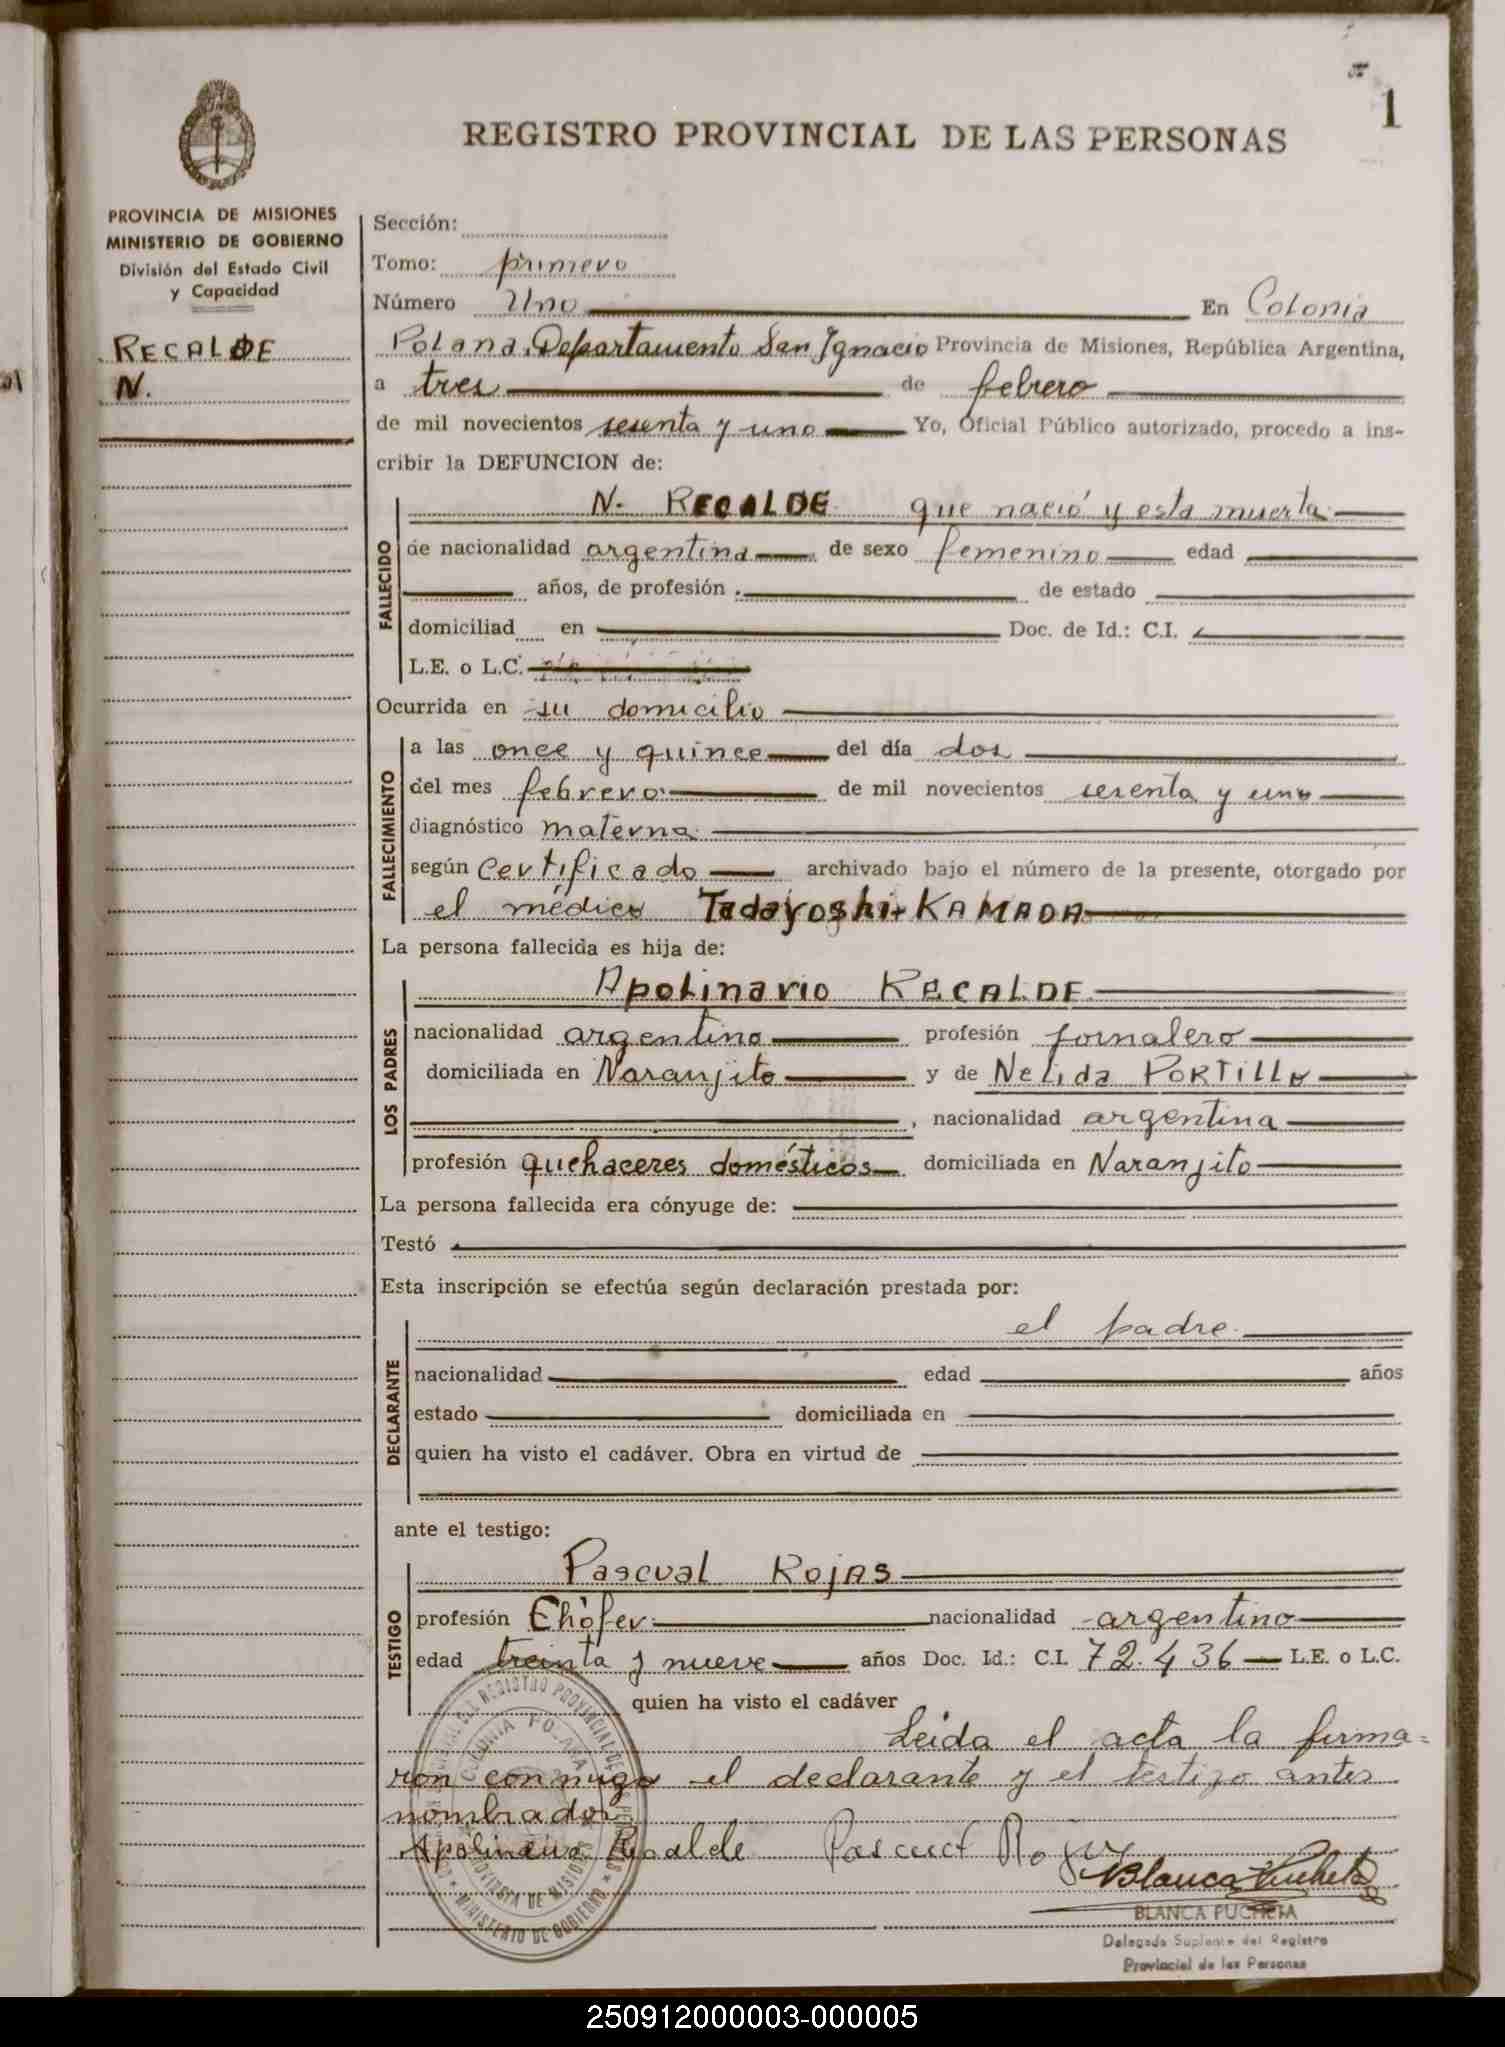 1
REGISTRO PROVINCIAL DE LAS PERSONAS
PROVINCIA DE MISIONES
MINISTERIO DE GOBIERNO
División del Estado Civil
y Capacidad
RECALDE
N.
Sección:
Tomo: primero
Número Uno En Colonia
Polana, Departamento San Ignacio Provincia de Misiones, República Argentina,
a tres de febrero
de mil novecientos sesenta y uno Yo, Oficial Público autorizado, procedo a ins-
cribir la DEFUNCION de:
FALLECIDO
N. RECALDE que nació y esta muerta
de nacionalidad argentina de sexo femenino edad
años, de profesión de estado
domiciliad en Doc. de Id.: C.I.
L.E. o L.C.
Ocurrida en su domicilio
FALLECIMIENTO
a las once y quince del día dos
del mes febrero de mil novecientos sesenta y uno
diagnóstico materna
según Certificado archivado bajo el número de la presente, otorgado por
el médico Tadayoshi KAMADA
La persona fallecida es hija de:
LOS PADRES
Apolinario RECALDE
nacionalidad argentino profesión jornalero
domiciliada en Naranjito y de Nelida PORTILLO
, nacionalidad argentina
profesión quehaceres domésticos domiciliada en Naranjito
La persona fallecida era cónyuge de:
Testó
Esta inscripción se efectúa según declaración prestada por:
DECLARANTE
el padre
nacionalidad edad años
estado domiciliada en
quien ha visto el cadáver. Obra en virtud de
ante el testigo:
TESTIGO
Pascual ROJAS
profesión Chófer nacionalidad argentino
edad treinta y nueve años Doc. Id.: C.I. 72.436 L.E. o L.C.
quien ha visto el cadáver
Leida el acta la firma=
ron conmigo el declarante y el testigo antes
nombrados
Apolinario Recalde Pascual Rojas
Blanca Pucheta
BLANCA PUCHETA
Delegada Suplente del Registro
Provincial de las Personas
REGISTRO PROVINCIAL DE
COLONIA POLANA
PROVINCIA DE MISIONES
MINISTERIO DE GOBIERNO
250912000003-000005